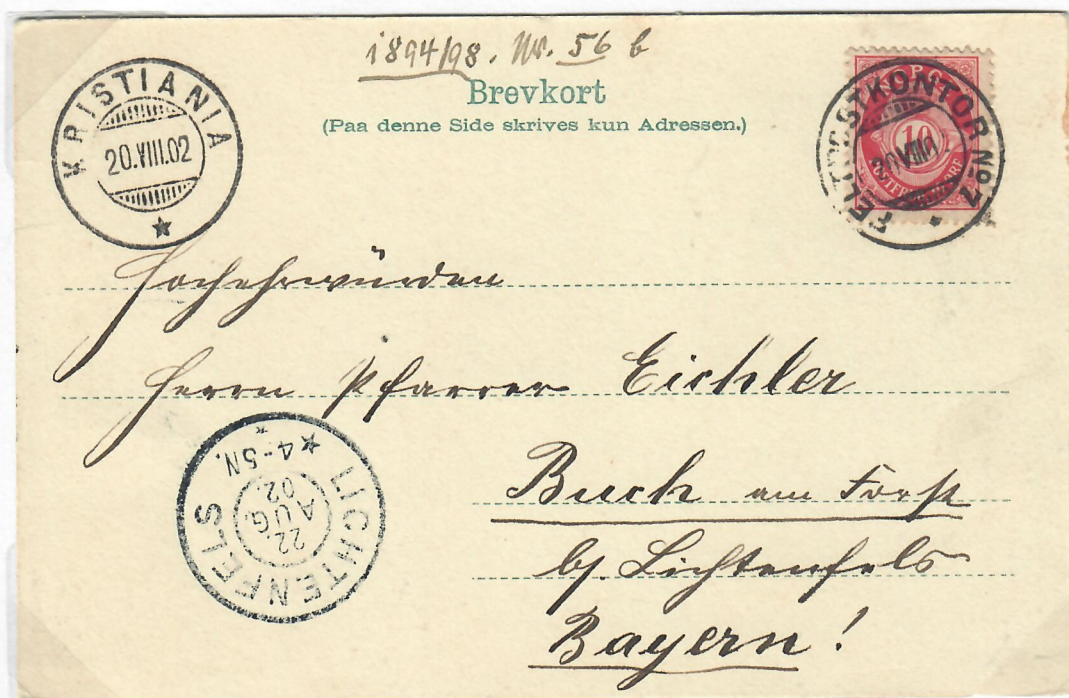 1894/98. Nr. 56 b
Brevkort
(Paa denne Side skrives kun Adressen.)
KRISTIANIA
20.VIII.02
FELTPOSTKONTOR No 7
20 VIII 0
10
Hochehrwürden
Herrn Pfarrer Eichler
Buch am Forst
b/. Lichtenfels
Bayern!
LICHTENFELS
22
AUG.
02.
4-5N.